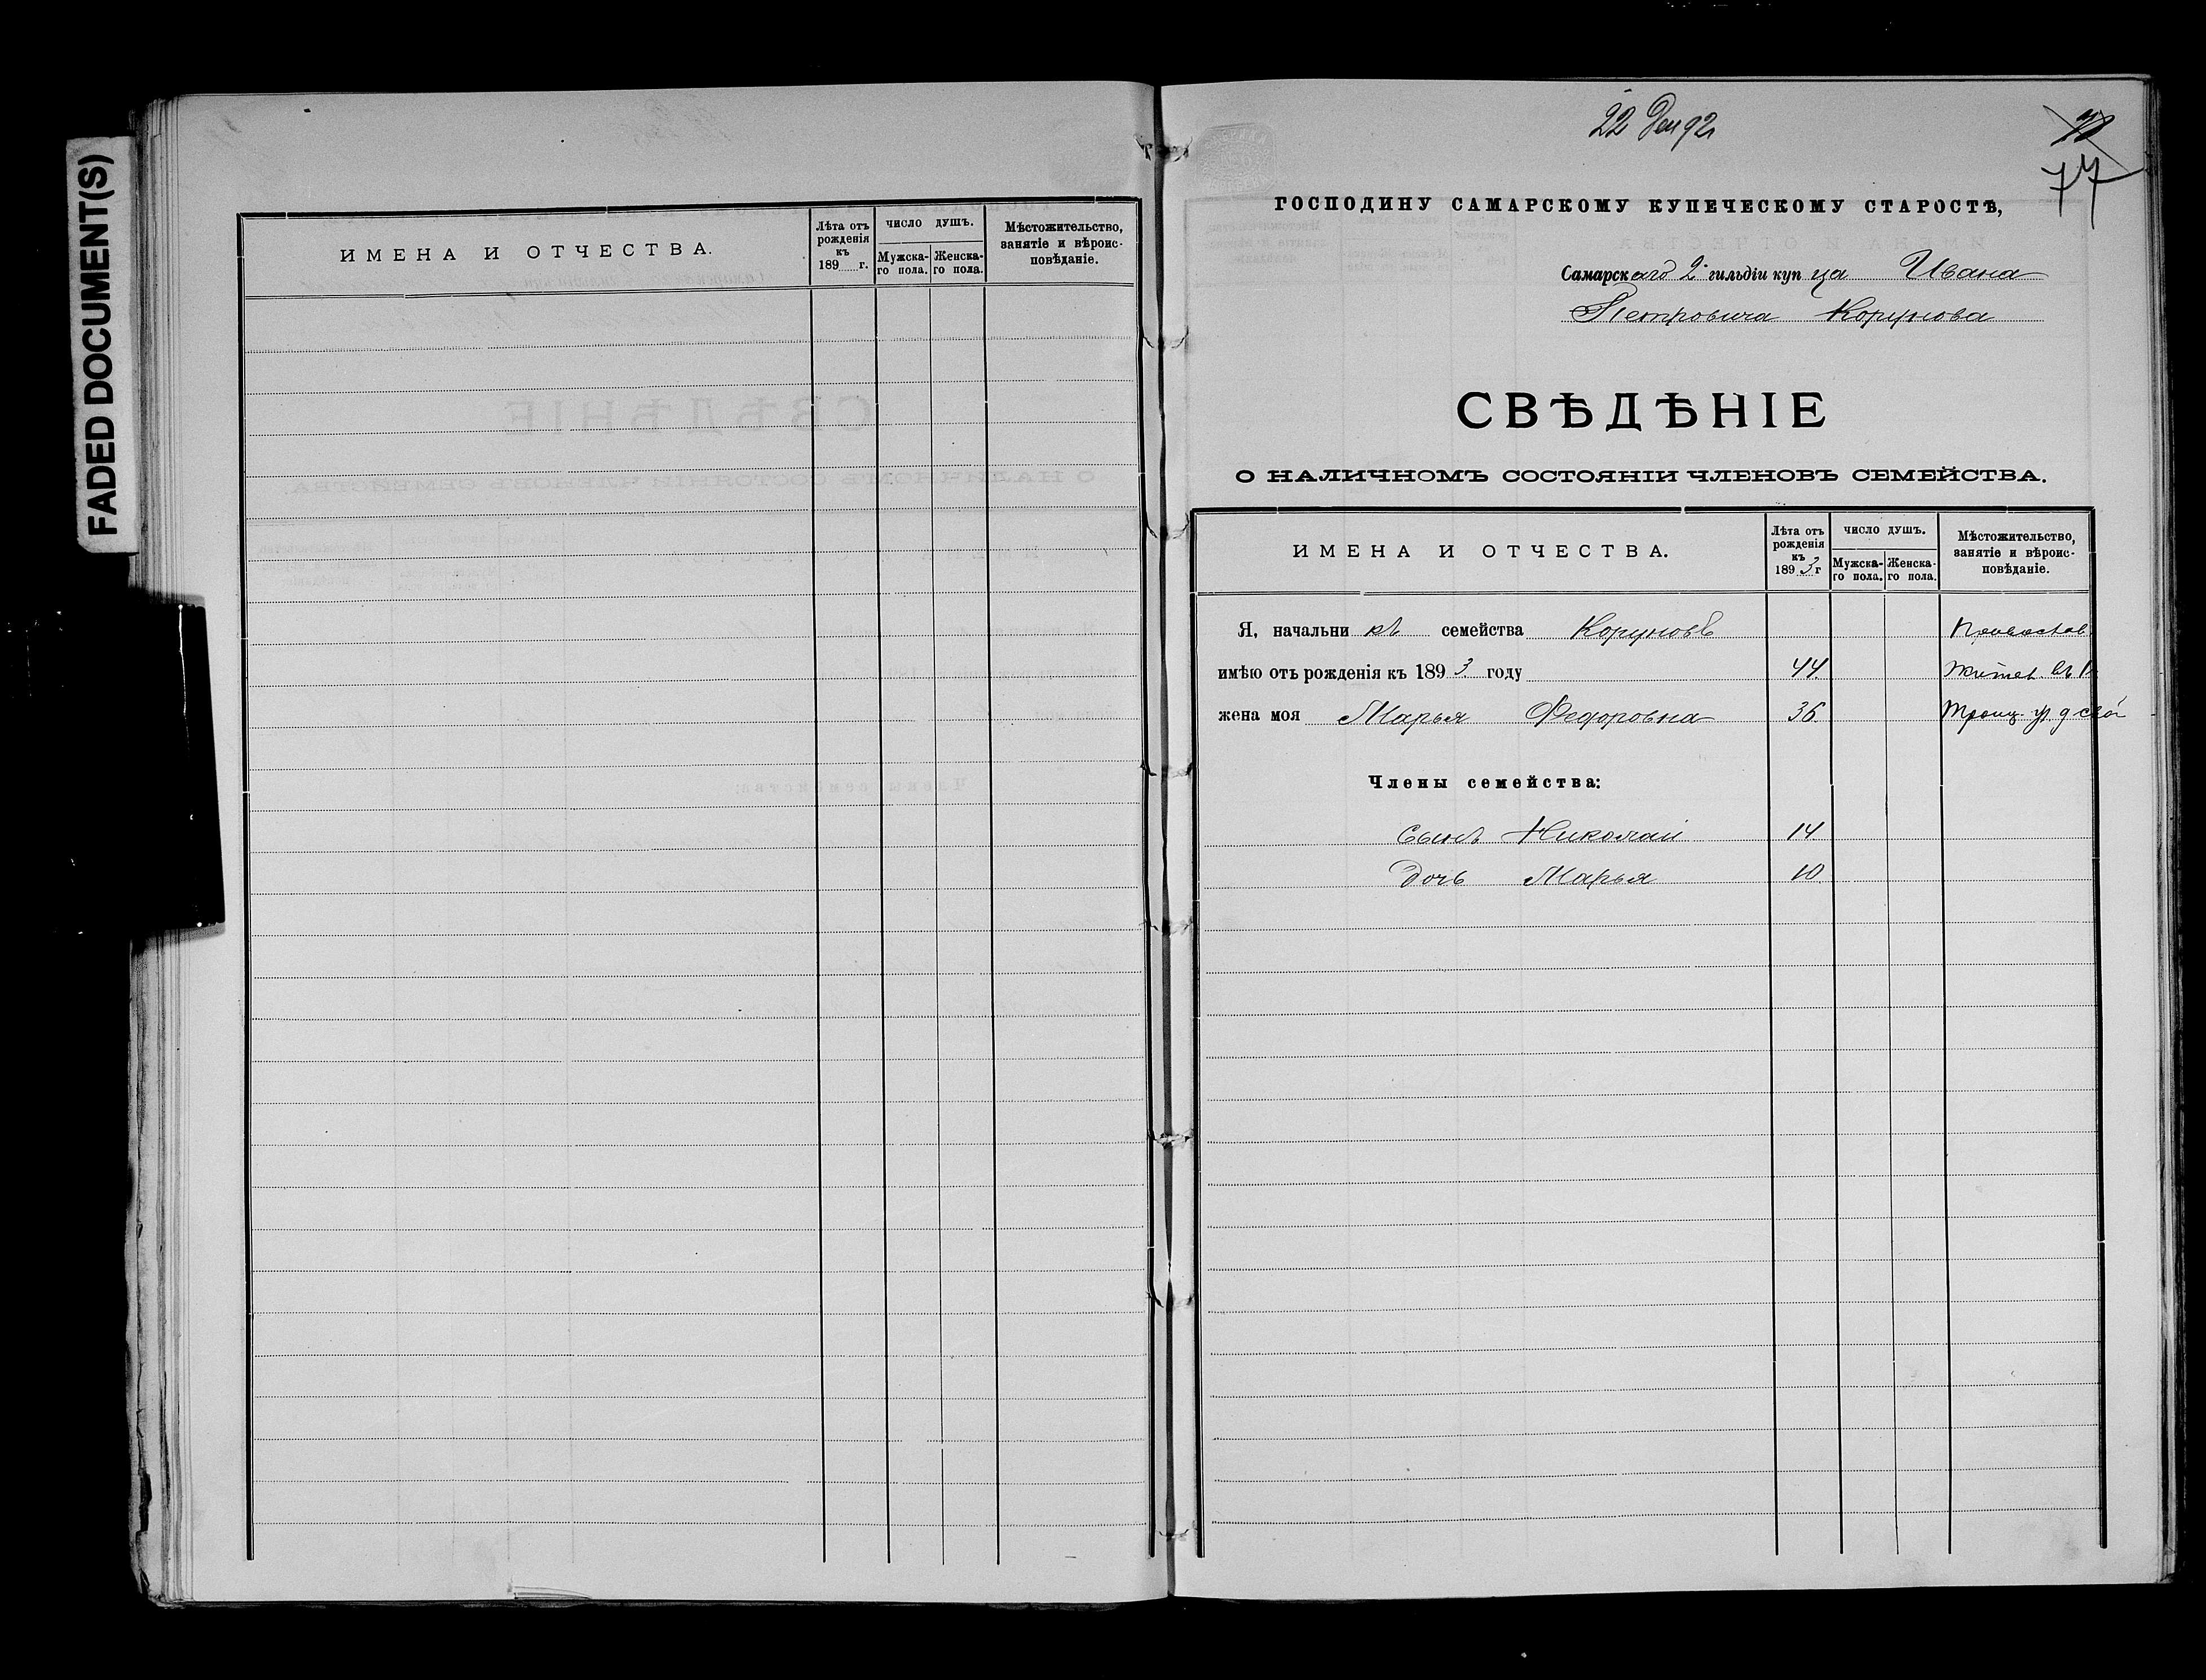 FADED DOCUMENT(S)
ИМЕНА И ОТЧЕСТВА.
Лѣта отъ рожденія къ 189 г.
ЧИСЛО ДУШЪ.
Мужска-го пола.
Женска-го пола.
Мѣстожительство, занятіе и вѣроис-повѣданіе.
22 Дек 92
77
ГОСПОДИНУ САМАРСКОМУ КУПЕЧЕСКОМУ СТАРОСТѢ,
Самарскаго 2 гильдіи купца Ивана
Петровича Корунова
СВѢДѢНІЕ
О НАЛИЧНОМЪ СОСТОЯНІИ ЧЛЕНОВЪ СЕМЕЙСТВА.
ИМЕНА И ОТЧЕСТВА.
Лѣта отъ рожденія къ 1893 г
ЧИСЛО ДУШЪ.
Мужска-го пола.
Женска-го пола.
Мѣстожительство, занятіе и вѣроис-повѣданіе.
Я, начальникъ семейства Коруновъ Православ
имѣю отъ рожденія къ 1893 году 44 Жител. въ
жена моя Марья Федоровна 36 Троиц. ул д
Члены семейства:
Сынъ Николай 14
Дочь Марья 10